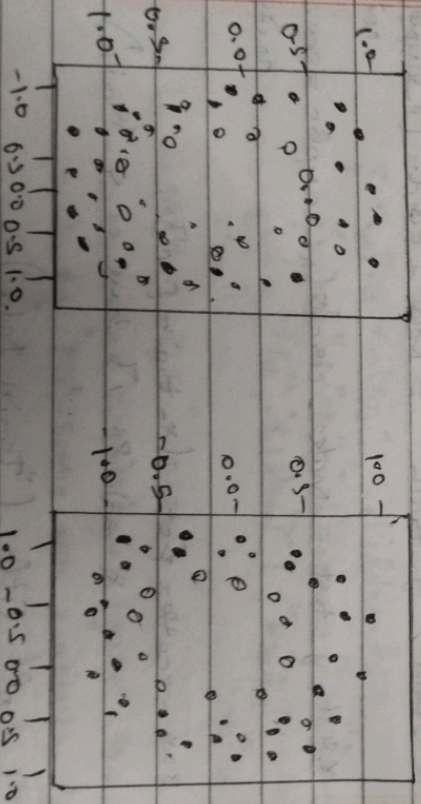 1.0-
0.5-
0.0-
0.5-
1.0-
-1.0 0.5 0.0 0.5 1.0
1.0-
0.5-
0.0-
-0.5-
-1.0-
-1.0 -0.5 0.0 0.5 1.0